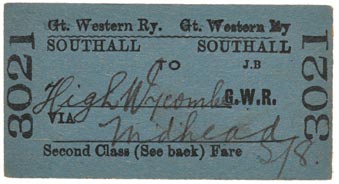 3021
Gt. Western Ry. Gt. Western Ry
SOUTHALL SOUTHALL
TO J.B
High Wycombe G.W.R.
VIA Mdhead
Second Class (See back) Fare 5/8.
3021